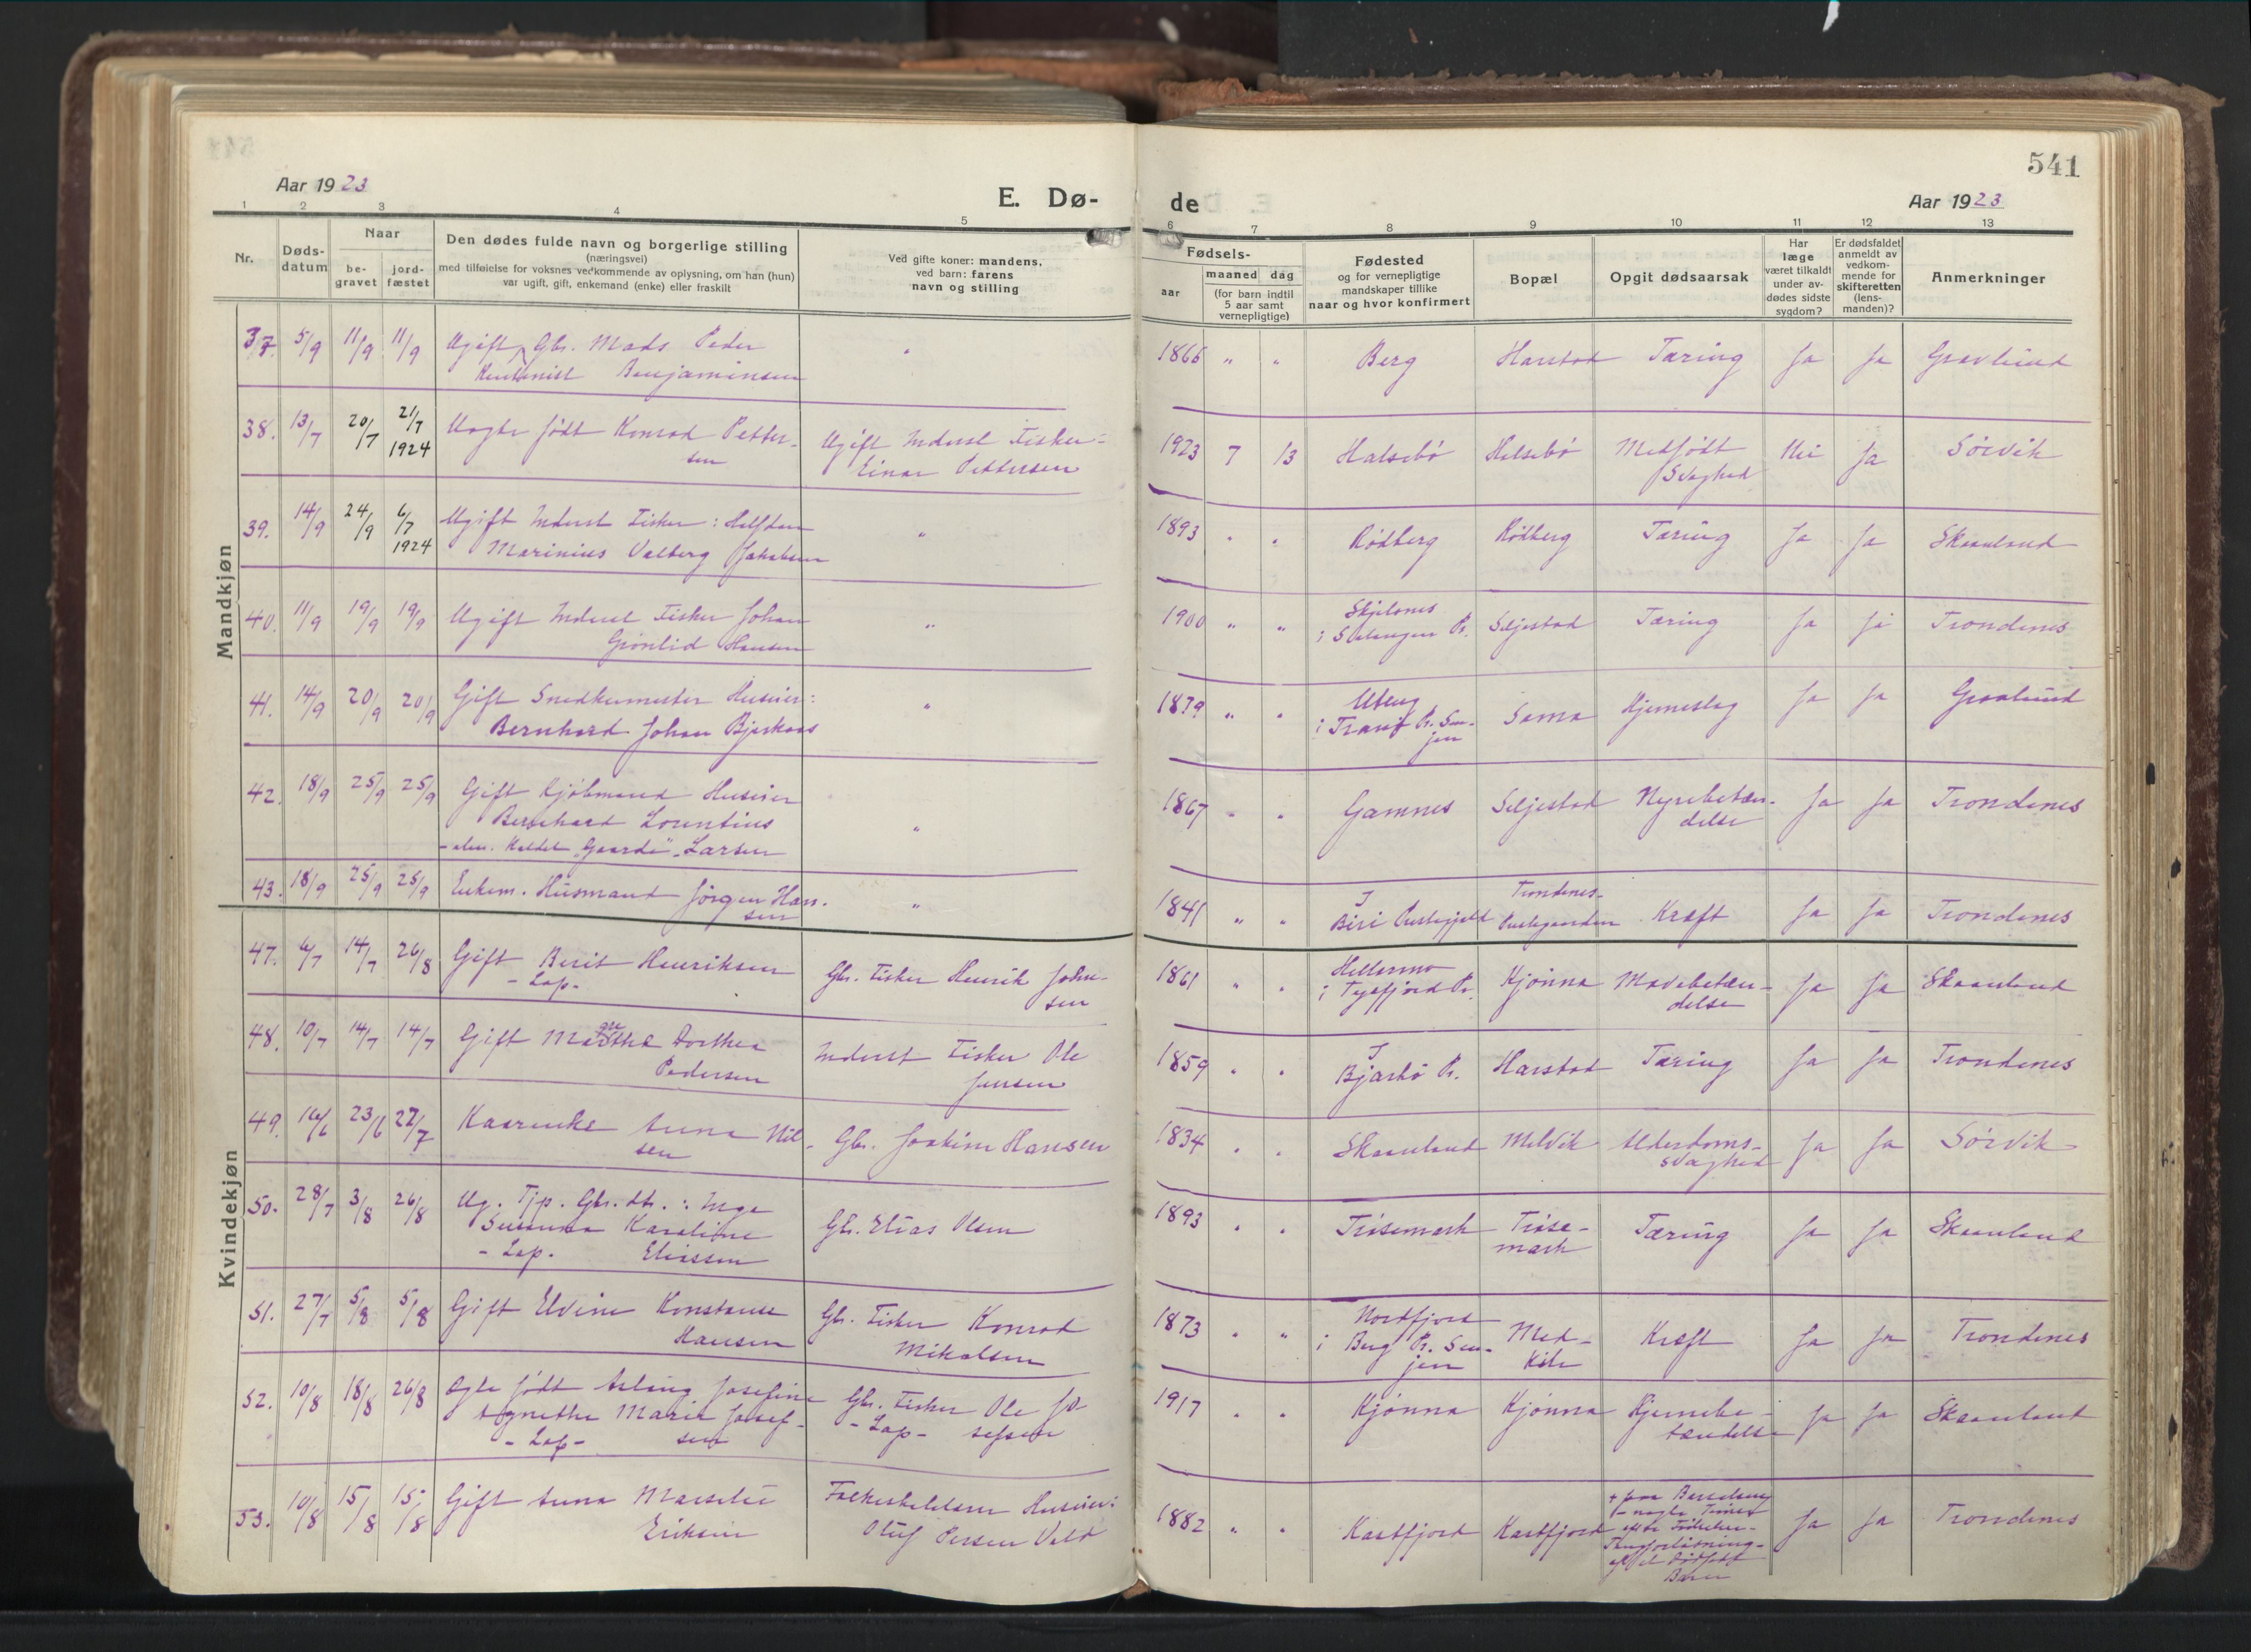 541
Aar 1923
E. Dø-
de
Aar 1923
1 2 3 4 5 6 7 8 9 10 11 12 13
Nr.
Døds-
datum
Naar
be-
gravet
jord-
fæstet
Den dødes fulde navn og borgerlige stilling
(næringsvei)
med tilføielse for voksnes vedkommende av oplysning, om han (hun)
var ugift, gift, enkemand (enke) eller fraskilt
Ved gifte koner: mandens,
ved barn: farens
navn og stilling
Fødsels-
aar
maaned dag
(for barn indtil
5 aar samt
vernepligtige)
Fødested
og for vernepligtige
mandskaper tillike
naar og hvor konfirmert
Bopæl
Opgit dødsaarsak
Har
læge
været tilkaldt
under av-
dødes sidste
sygdom?
Er dødsfaldet
anmeldt av
vedkom-
mende for
skifteretten
(lens-
manden)?
Anmerkninger
Mandkjøn
37. 5/9 11/9 11/9 Ugift Gbr. Mads Peder
Benjaminsen
" 1866 " " Berg Harstad Tæring Ja Ja Gravlund
38. 13/7 20/7 21/7
1924
Uægte født Konrad Petter-
sen
Ugift Inderst Fisker:
Einar Pettersen
1923 7 13 Halsebø Halsebø Medfødt
Svaghed
Nei Ja Sørvik
39. 14/9 24/9 6/7
1924
Ugift Inderst Fisker: Halfdan
Marinius Valberg Jakobsen
" 1893 " " Rødberg Rødberg Tæring Ja Ja Skaanland
40. 11/9 19/9 19/9 Ugift Inderst Fisker Johan
Grønlid Hansen
" 1900 " " Skjelsnes
i Salangen Pr.
Seljestad Tæring Ja Ja Trondenes
41. 14/9 20/9 20/9 Gift Snedkermester Huseier:
Bernhard Johan Bjerkaas
" 1879 " "
i Tranø Pr. Sen-
jen
Sama Hjerneslag Ja Ja Gravlund
42. 18/9 25/9 25/9 Gift Kjøbmand Huseier
Bernhard Lorentius
- alm. kaldet "Gaarde" - Larsen
" 1867 " " Gamnes Seljestad Nyrebetæn-
delse
Ja Ja Trondenes
43. 18/9 25/9 25/9 Enkem. Husmand Jørgen Han-
sen
" 1841 " " I
Biri Prestegjeld
Trondenes-
Prestegaarden
Kræft Ja Ja Trondenes
Kvindekjøn
47. 6/7 14/7 26/8 Gift Berit Henriksen
- Lap -
Gbr. Fisker Henrik John-
sen
1861 " " Hellermo
i Tysfjord Pr.
Kjønna Mavebetæn-
delse
Ja Ja Skaanland
48. 10/7 14/7 14/7 Gift Dorthea
Pedersen
Inderst Fisker Ole
Jensen
1859 " " I
Bjarkø Pr.
Harstad Tæring Ja Ja Trondenes
49. 16/6 23/6 27/7 Kaarenke Anna Nil-
sen
Gbr. Joakim Hansen
1834 " " Skaanland Melvik Alderdoms-
svaghed
Ja Ja Sørvik
50. 28/7 3/8 26/8 Ug. Tjp. Gbr. dtr.: Inga
Susanna Karoline
- Lap. Eliassen
Gbr. Elias Olsen
1893 " " Trøsemark Trøse-
mark
Tæring Ja Ja Skaanland
51. 27/7 5/8 5/8 Gift Elvine Konstanse
Hansen
Gbr. Fisker Konrad
Mikalsen
1873 " " Nordfjord
i Berg Pr. Sen-
jen
Med-
kila
Kræft Ja Ja Trondenes
52. 10/8 18/8 26/8 Ægte født Aslaug Josefine
Agnethe Marie Josef-
- Lap - sen
Gbr. Fisker Ole Jo
- Lap - sefsen
1917 " " Kjønna Kjønna Hjernebe-
tændelse
Ja Ja Skaanland
53. 10/8 15/8 15/8 Gift Anna Marselie
Eriksen
Huseier:
Oluf Persen Vold
1882 " " Kastfjord Kastfjord + paa Barselseng
- nogle Timer
efter
af et dødfødt
Barn
Ja Ja Trondenes